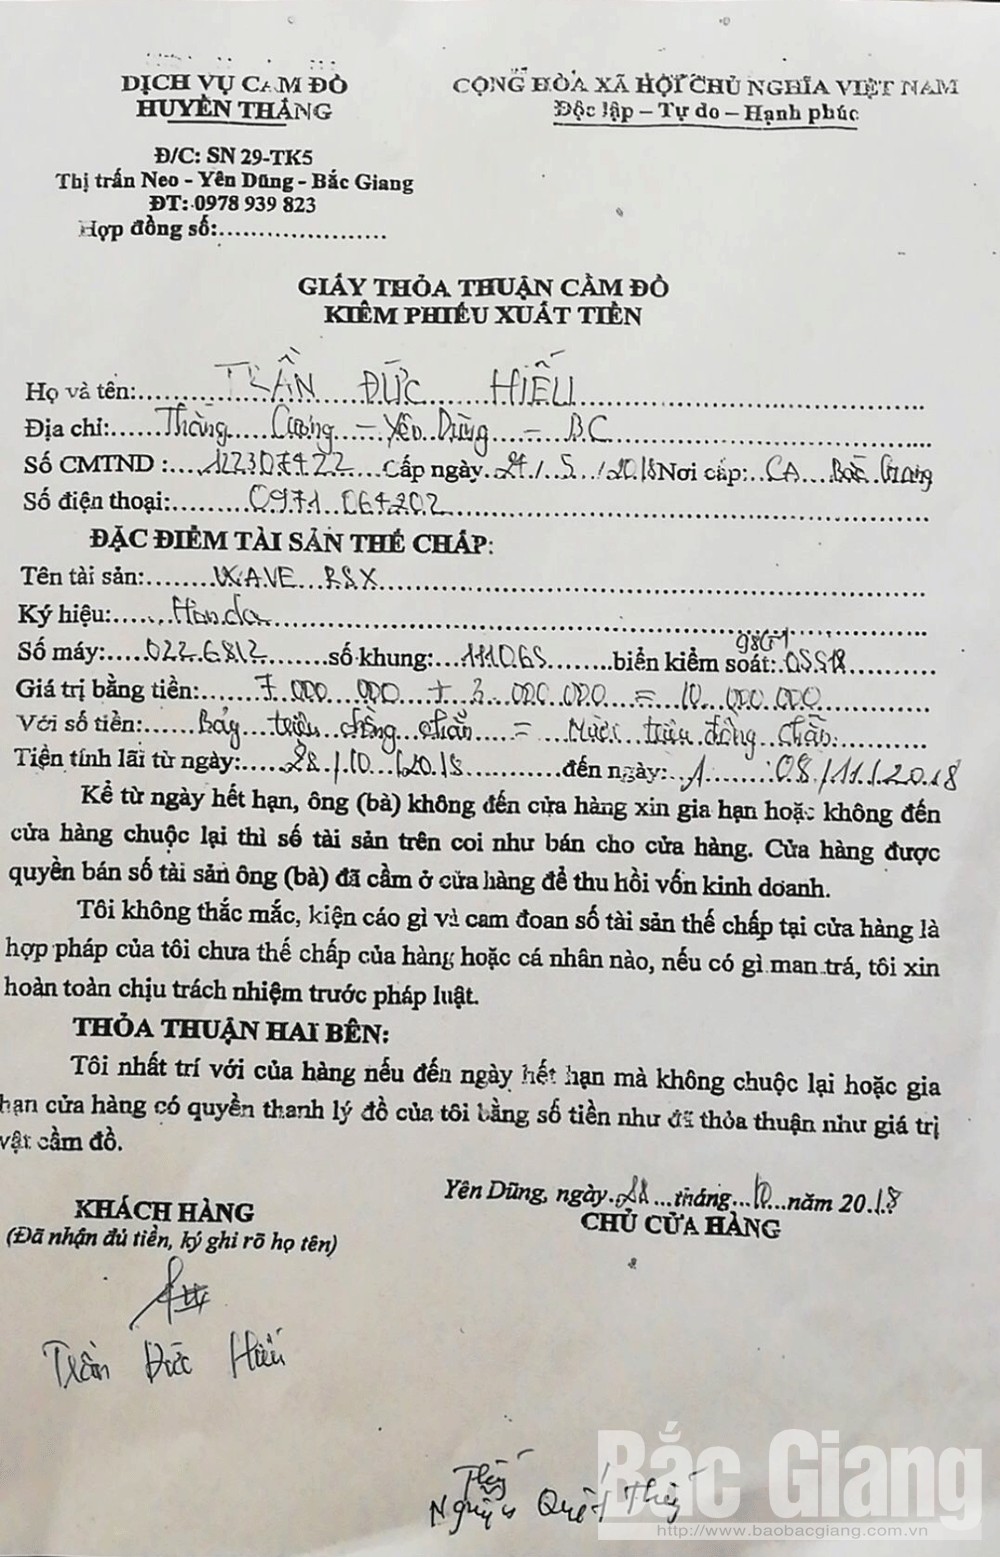 DỊCH VỤ CẦM ĐỒ
HUYỀN THẮNG
Đ/C: SN 29-TK5
Thị trấn Neo - Yên Dũng - Bắc Giang
ĐT: 0978 939 823
Hợp đồng số:....................
CỘNG HÒA XÃ HỘI CHỦ NGHĨA VIỆT NAM
Độc lập – Tự do – Hạnh phúc
GIẤY THỎA THUẬN CẦM ĐỒ
KIÊM PHIẾU XUẤT TIỀN
Họ và tên: TRẦN ĐỨC HIẾU
Địa chỉ: Thắng Cương – Yên Dũng – BG
Số CMTND : 122307422 Cấp ngày 27/5/2018 Nơi cấp: CA Bắc Giang
Số điện thoại: 0971 064202
ĐẶC ĐIỂM TÀI SẢN THẾ CHẤP:
Tên tài sản: WAVE RSX
Ký hiệu: Honda
Số máy: 0226812 số khung: 111065 biển kiểm soát: 98G1 05518
Giá trị bằng tiền: 7.000.000 + 3.000.000 = 10.000.000
Với số tiền: Bảy triệu đồng chẵn = Mười triệu đồng chẵn
Tiền tính lãi từ ngày: 28/10/2018 đến ngày: 08/11/2018
Kể từ ngày hết hạn, ông (bà) không đến cửa hàng xin gia hạn hoặc không đến
cửa hàng chuộc lại thì số tài sản trên coi như bán cho cửa hàng. Cửa hàng được
quyền bán số tài sản ông (bà) đã cầm ở cửa hàng để thu hồi vốn kinh doanh.
Tôi không thắc mắc, kiện cáo gì và cam đoan số tài sản thế chấp tại cửa hàng là
hợp pháp của tôi chưa thế chấp của hàng hoặc cá nhân nào, nếu có gì man trá, tôi xin
hoàn toàn chịu trách nhiệm trước pháp luật.
THỎA THUẬN HAI BÊN:
Tôi nhất trí với của hàng nếu đến ngày hết hạn mà không chuộc lại hoặc gia
hạn cửa hàng có quyền thanh lý đồ của tôi bằng số tiền như đã thỏa thuận như giá trị
vật cầm đồ.
Yên Dũng, ngày 28 tháng 10 năm 2018
KHÁCH HÀNG
(Đã nhận đủ tiền, ký ghi rõ họ tên)
CHỦ CỬA HÀNG
Trần Đức Hiếu
Nguyễn Quyết Thắng
Bắc Giang
http://www.baobacgiang.com.vn